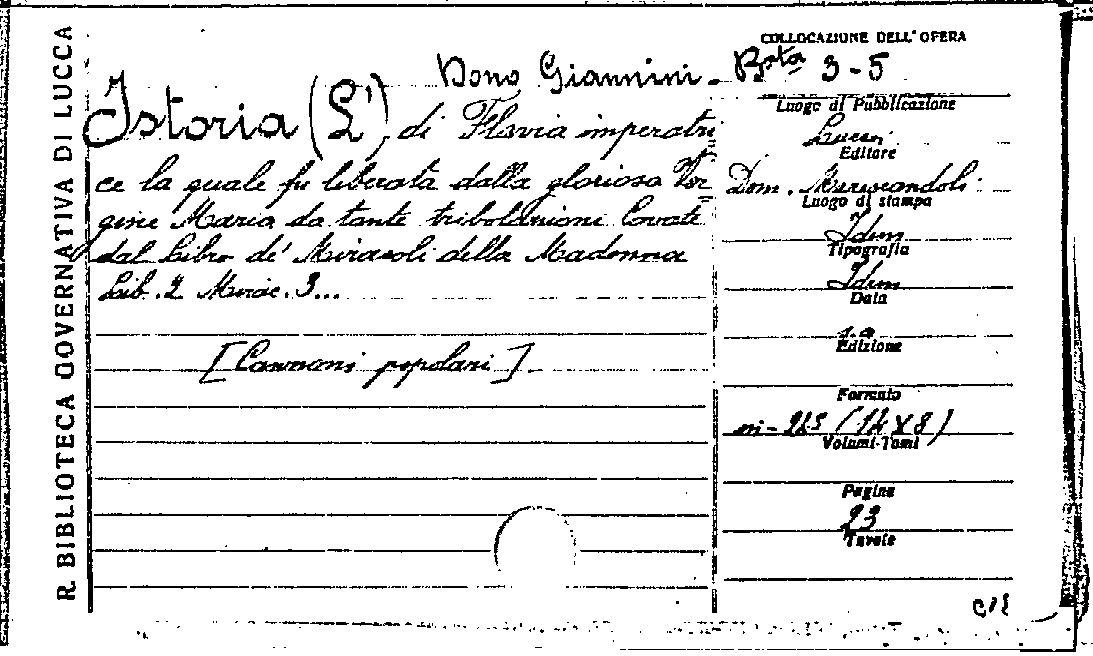 R. BIBLIOTECA GOVERNATIVA DI LUCCA
COLLOCAZIONE DELL'OPERA
Dono Giannini - Bsta 3-5
Istoria (L'), di Flavia imperatri
ce la quale fu liberata dalla gloriosa Ver
gine Maria da tante tribolazioni Cavate
dal Libro de' Miracoli della Madonna
Lib. 2 Mirac. 3...
[Canzoni popolari].
Luogo di Pubblicazione
Lucca
Editore
Dom. Marescandoli
Luogo di stampa
Idem
Tipografia
Idem
Data
s.a
Edizione
Formato
(14x8)
Volumi-Tomi
Pagine
23
Tavole